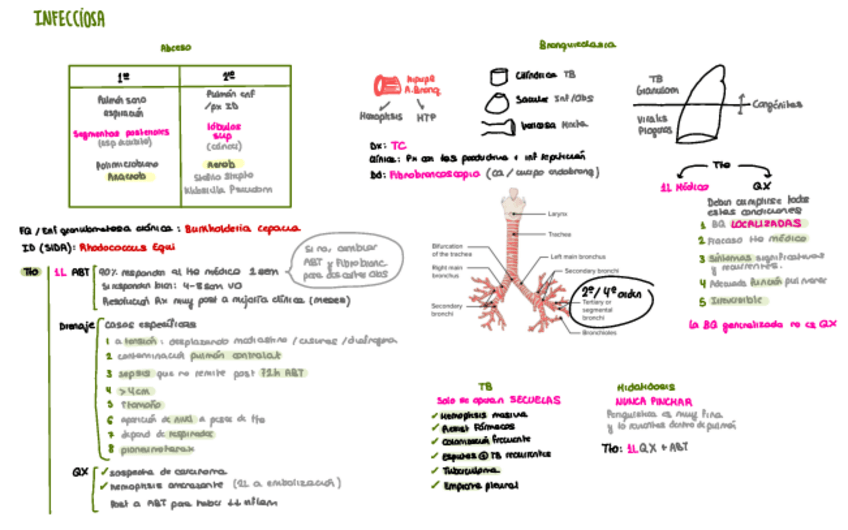 INFECCÍOSA
Absceso
1º
2º
Pulmón sano
aspiración
Segmentos posteriores
(asp decúbito)
Polimicrobiano
Anaerob
Pulmón enf
/px ID
lóbulos
sup
(cánceR)
Aerob
Stafilo Strepto
Klebsiella Pseudom
FQ / Enf granulomatosa crónica : Burkholderia cepacia
ID (SIDA): Rhodococcus Equi
Si no, cambiar
ABT y Fibrobronc
para descartar obs
Tto
1L ABT
90% responden al tto médico 1 sem
Si responden bien: 4-8 sem VO
Resolución Rx muy post a mejoría clínica (meses)
Drenaje
casos específicos
1 a tensión : desplazando mediastino / cisuras / diafragma
2 contaminación pulmón contralat
3 sepsis que no remite post 72h ABT
4 >4cm
5 ↑tamaño
6 aparición de nivel a pesar de tto
7 depend de respirador
8 pioneumotórax
QX
✓ sospecha de carcinoma
✓ hemoptisis amenazante (2L a embolización)
Post a ABT para haber ↓↓ inflam
Bronquiectasia
hiperpl
A. Bronq
Hemoptisis
HTP
Cilíndrica TB
Sacular Inf/Obs
Varicosa Mixta
TB
Granulom
Virales
Piógenos
Congénitas
Dx: TC
Clínica: Px con tos productiva + inf repetición
Dd: Fibrobroncoscopia (ca / cuerpo endobronq)
Larynx
Trachea
Bifurcation
of the trachea
Right main
bronchus
Secondary
bronchi
Left main bronchus
Secondary bronchi
2º/4º orden
Tertiary or
segmental
bronchi
Bronchioles
Tto
1L Médico
QX
Deben cumplirse todas
estas condiciones
1 BQ LOCALIZADAS
2 Fracaso tto médico
3 Síntomas significativos
y recurrentes.
4 Adecuada función pulmonar
5 Irreversible
La BQ generalizada no es QX
TB
Solo se operan SECUELAS
✓ Hemoptisis masiva
✓ Resist Fármacos
✓ Colonización frecuente
✓ Esputos ⊕ TB recurrentes
✓ Tuberculoma
✓ Empiema pleural
Hidatidosis
NUNCA PINCHAR
y lo revientes dentro de pulmón
Tto: 1L QX + ABT